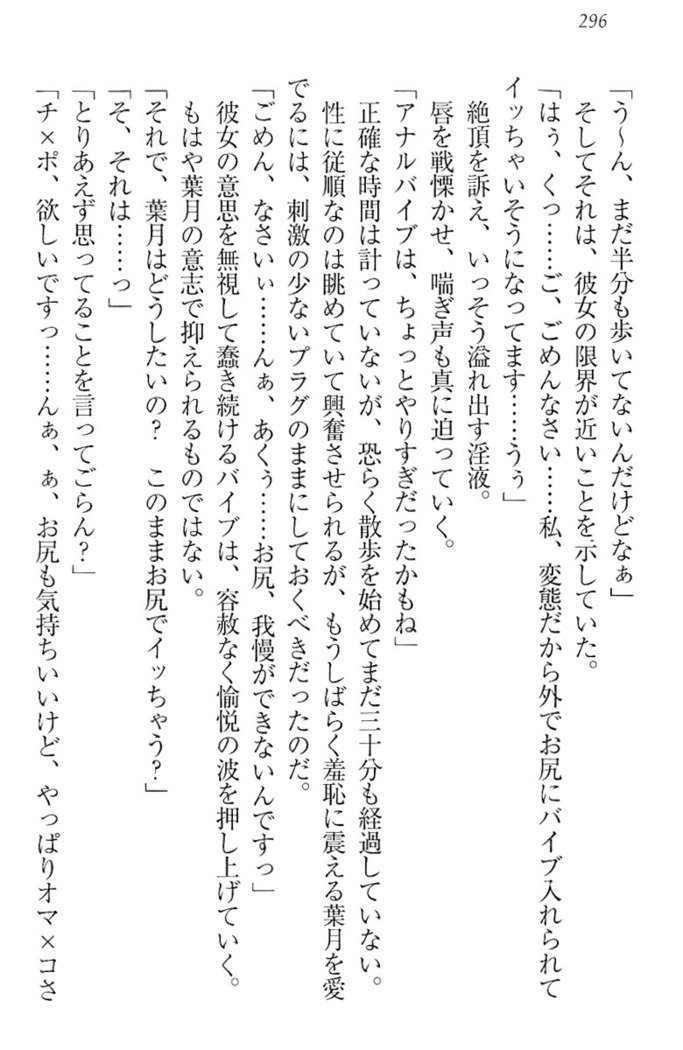 296
「う～ん、まだ半分も歩いてないんだけどなぁ」
そしてそれは、彼女の限界が近いことを示していた。
「はぅ、くっ……ご、ごめんなさい……私、変態だから外でお尻にバイブ入れられて
イッちゃいそうになってます……うぅ」
絶頂を訴え、いっそう溢れ出す淫液。
唇を戦慄かせ、喘ぎ声も真に迫っていく。
「アナルバイブは、ちょっとやりすぎだったかもね」
正確な時間は計っていないが、恐らく散歩を始めてまだ三十分も経過していない。
性に従順なのは眺めていて興奮させられるが、もうしばらく羞恥に震える葉月を愛
でるには、刺激の少ないプラグのままにしておくべきだったのだ。
「ごめん、なさいぃ……んぁ、あくぅ……お尻、我慢ができないんですっ」
彼女の意思を無視して蠢き続けるバイブは、容赦なく愉悦の波を押し上げていく。
もはや葉月の意志で抑えられるものではない。
「それで、葉月はどうしたいの？　このままお尻でイッちゃう？」
「そ、それは……っ」
「とりあえず思ってることを言ってごらん？」
「チ×ポ、欲しいですっ……んぁ、ぁ、お尻も気持ちいいけど、やっぱりオマ×コさ